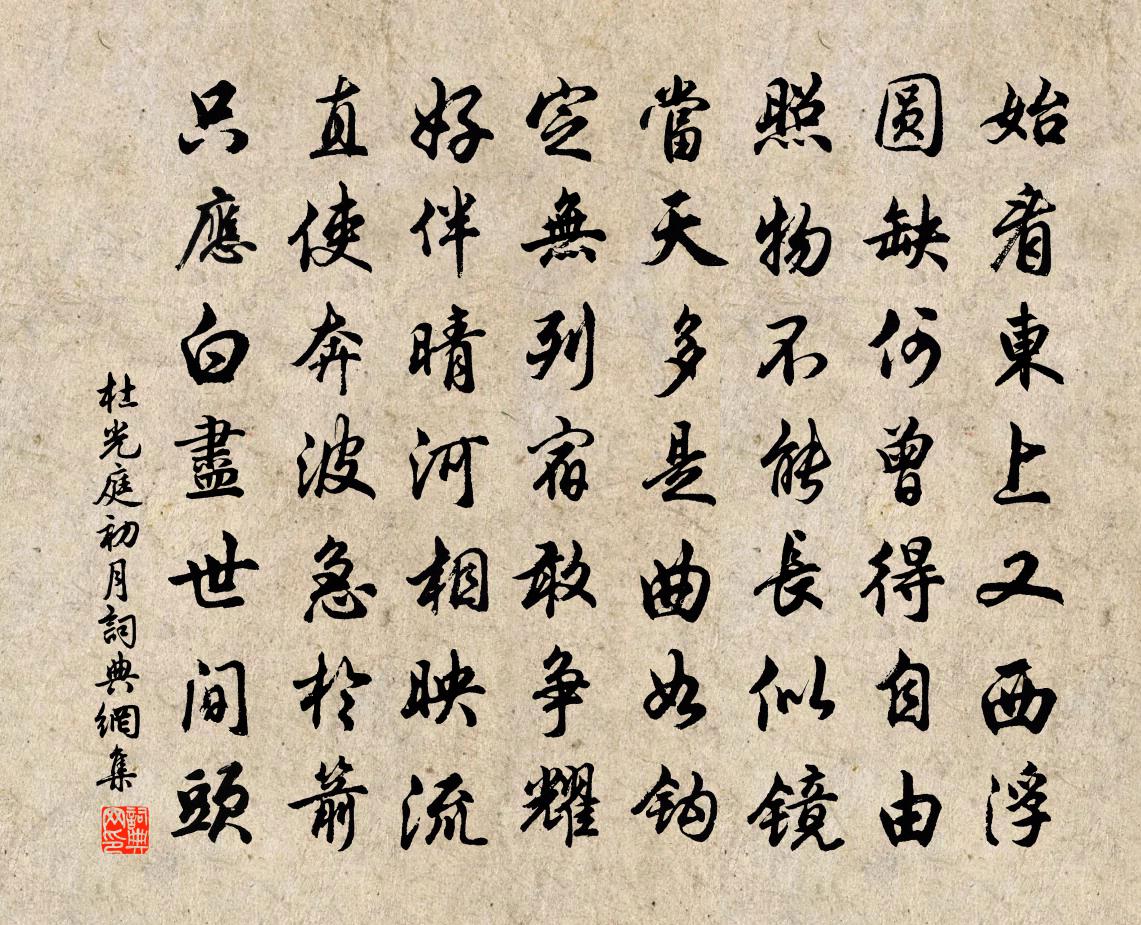 始看東上又西浮
圓缺何曾得自由
照物不能長似鏡
當天多是曲如鈎
定無列宿敢爭耀
好伴晴河相映流
直使奔波急於箭
只應白盡世間頭
杜光庭初月詞典網集
詞典網印